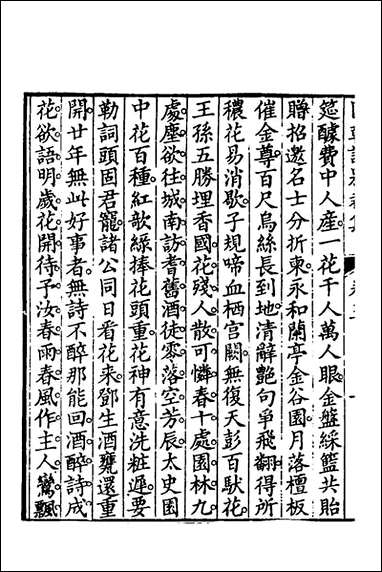 筵醵費中人產一花千人萬人眼金盤綵籃共貽
贈招邀名士分折柬永和蘭亭金谷園月落檀板
催金尊百尺烏絲長到地清辭艷句爭飛翻得所
穠花易消歇子規啼血栖宫闕無復天彭百馱花
王孫五勝埋香國花殘人散可憐春十處園林九
處塵欲往城南訪耆舊酒徒零落空芳辰太史園
中花百種紅欹綠捧花頭重花神有意洗粧遲要
勒詞頭固君寵諸公同日看花來鄧生酒甕還重
開廿年無此好事者無詩不醉那能回酒醉詩成
花欲語明歲花開待予汝春雨春風作主人鸞飄